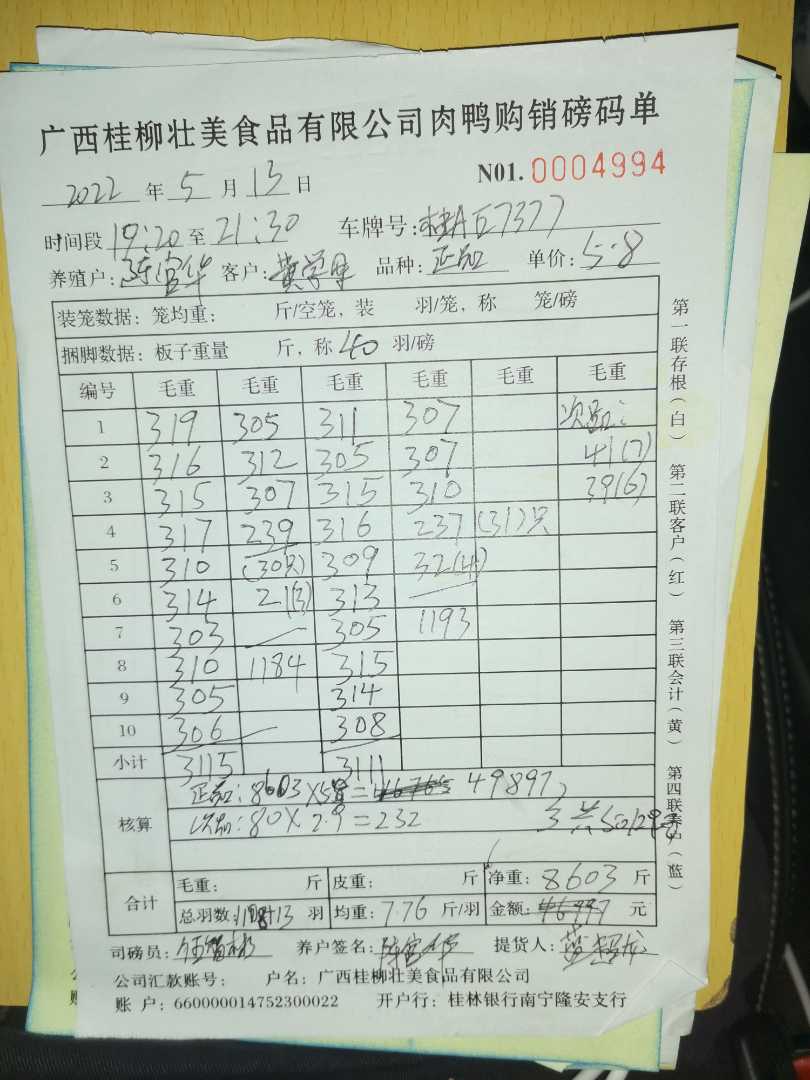 广西桂柳壮美食品有限公司肉鸭购销磅码单
2022 年 5 月 13 日 N01. 0004994
时间段 19:20 至 21:30 车牌号:桂A 7377
养殖户: 客户: 品种:正品 单价:5.8
装笼数据: 笼均重: 斤/空笼, 装 羽/笼, 称 笼/磅
捆脚数据: 板子重量 斤, 称 40 羽/磅
编号 毛重 毛重 毛重 毛重 毛重 毛重
1 319 305 311 307 次品:
2 316 312 305 307 41(7)
3 315 307 315 310 39(6)
4 317 239 316 237 (31)只
5 310 (30只) 309 32(4)
6 314 21(3) 313
7 303 305 1193
8 310 1184 315
9 305 314
10 306 308
小计 3115 3111
核算 正品:8603×5.8= 49897
次品:80×2.9=232
合计 毛重: 斤 皮重: 斤 净重: 8603 斤
总羽数: 羽 均重: 7.76 斤/羽 金额: 元
司磅员: 养户签名: 提货人:
公司汇款账号: 户名: 广西桂柳壮美食品有限公司
账 户: 660000014752300022 开户行: 桂林银行南宁隆安支行
第一联存根(白) 第二联客户(红) 第三联会计(黄) 第四联养户(蓝)